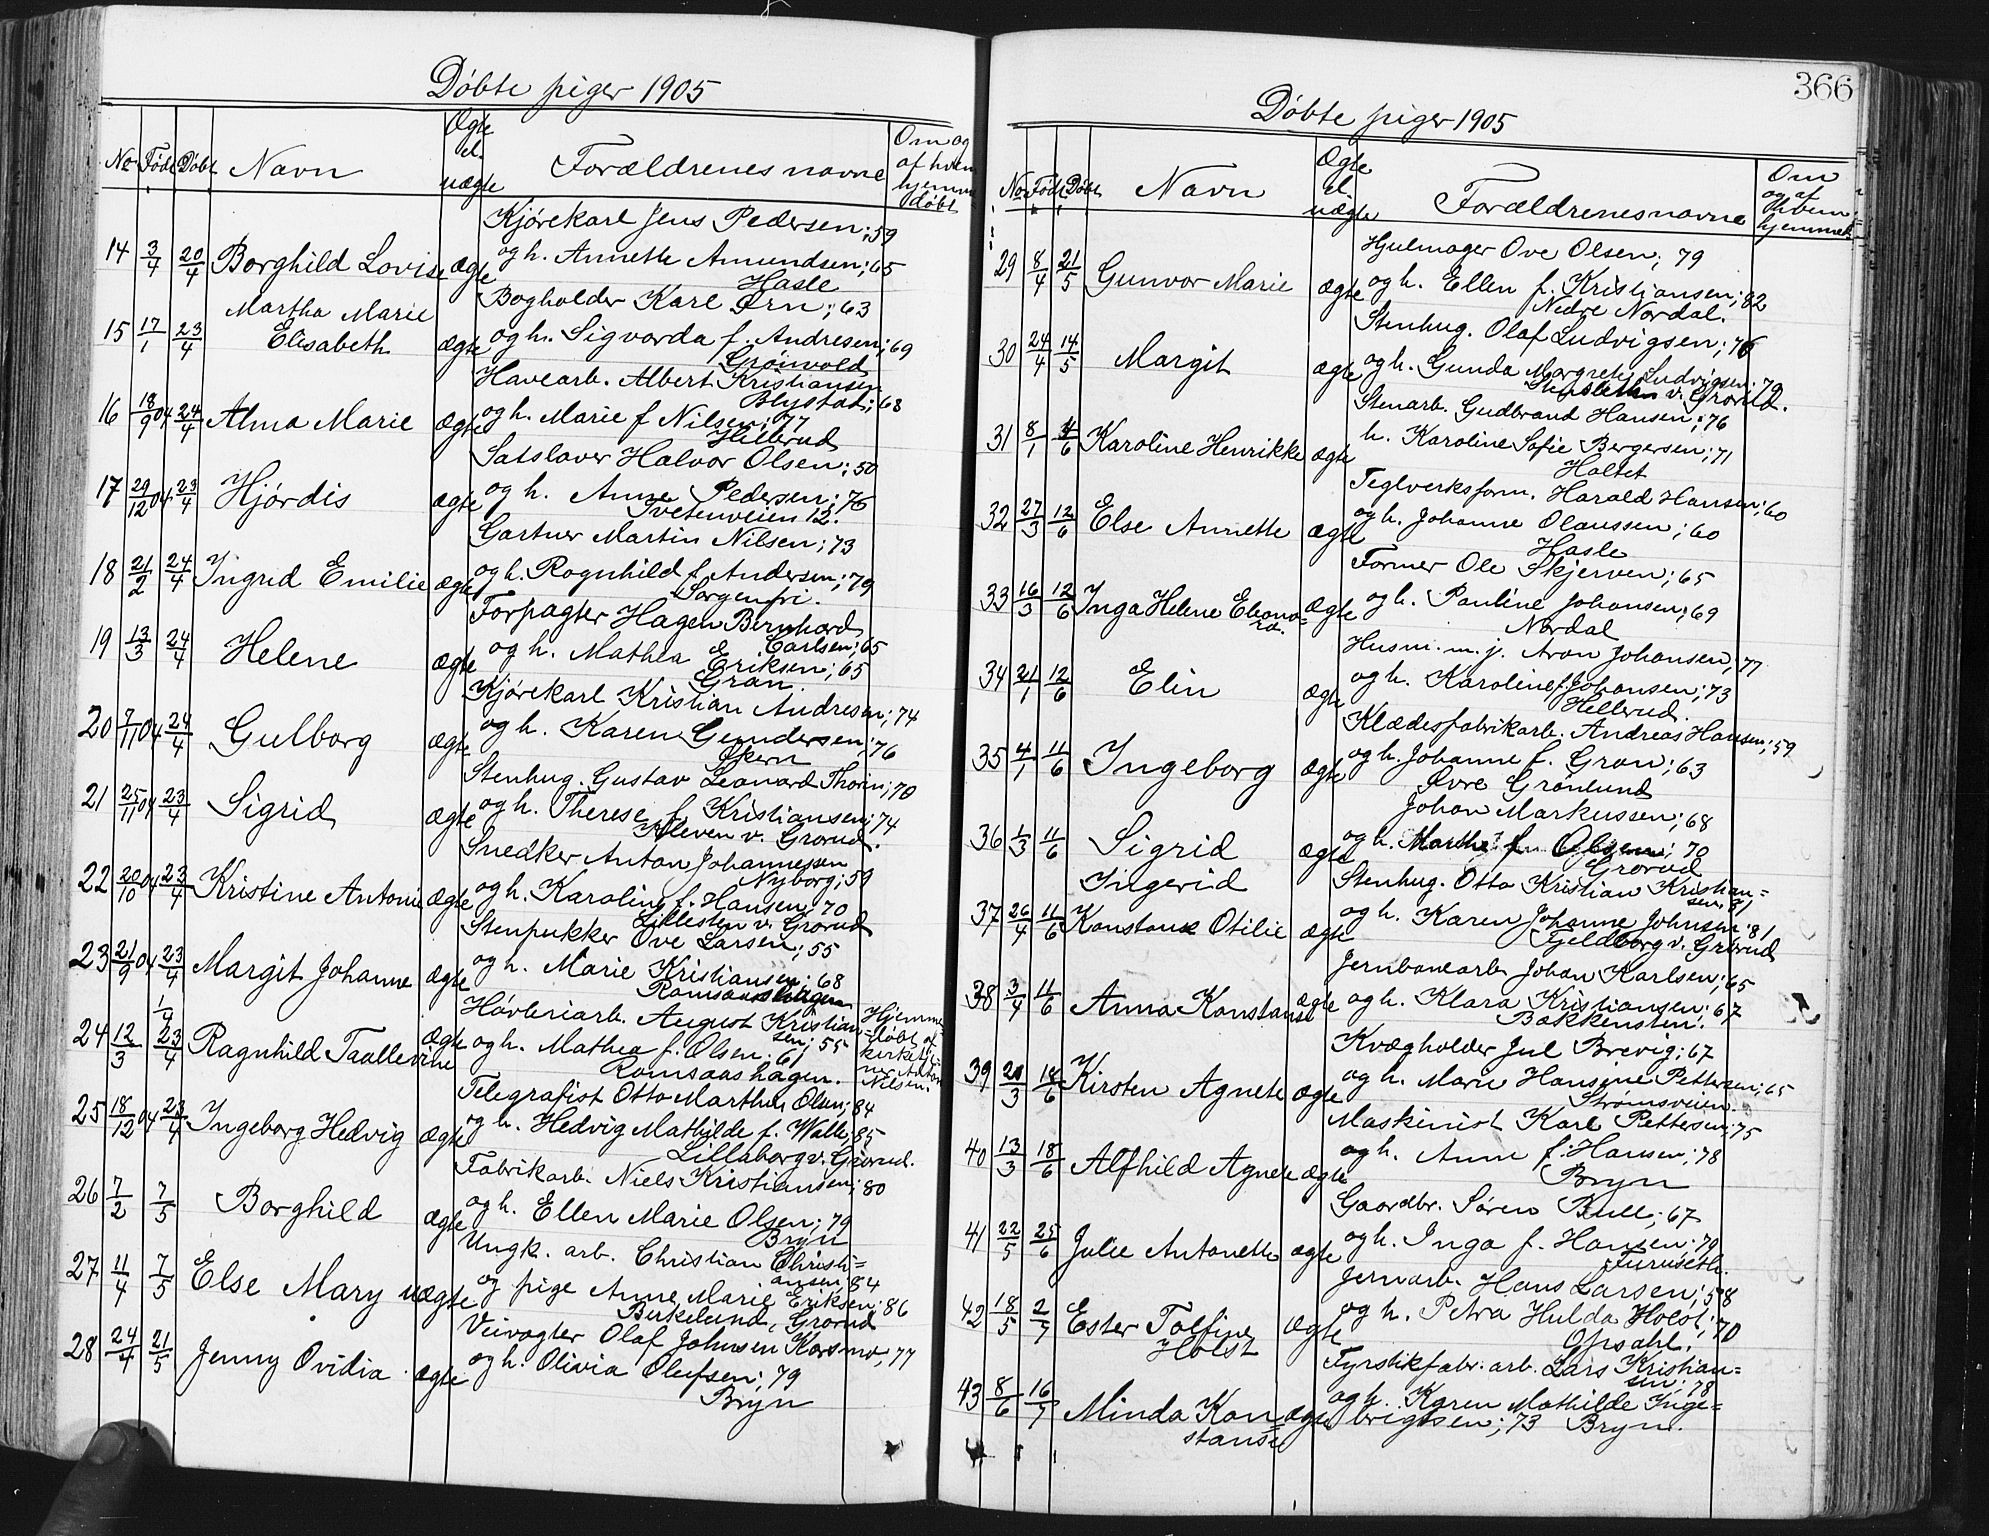 Döbte piger 1905
No Födt Döbt Navn Ægte el. uægte Forældrenes navne Om og af hvem hjemmedöbt
14 3/4 20/4 Borghild Lovise ægte Kjörekarl Jens Pedersen; 59
og h. Annette Amundsen; 65
Hasle
15 17/1 23/4 Martha Marie Elisabeth ægte Bogholder Karl Ørn; 63
og h. Sigvarda f. Andresen; 69
Grönvold
16 18/9 04 24/4 Alma Marie ægte Havearb. Albert Kristiansen
Blystad; 68
og h. Marie f Nilsen; 77
Hillerud
17 29/12 04 23/4 Hjördis ægte Satslaver Halvor Olsen; 50
og h. Anne Pedersen; 76
Tvetenveien 12.
18 21/2 24/4 Ingrid Emilie ægte Gartner Martin Nilsen; 73
og h. Ragnhild f. Andersen; 79
Sorgenfri.
19 13/3 24/4 Helene ægte Forpagter Hagen Bernhard
Carlsen; 65
og h. Mathea Eriksen; 65
Gran.
20 7/11 04 24/4 Gulborg ægte Kjörekarl Kristian Andresen; 74
og h. Karen Gundersen; 76
Økern
21 25/11 04 23/4 Sigrid ægte Stenhug. Gustav Leonard Thorin; 70
og h. Therese f. Kristiansen; 74
Kleven v. Grorud.
22 20/10 04 23/4 Kristine Antonie ægte Snedker Anton Johannessen
Nyborg; 59
og h. Karoline f. Hansen; 70
Lillesten v. Grorud
23 21/9 04 23/4 Margit Johanne ægte Stenpukker Ove Larsen; 55
og h. Marie Kristiansen; 68
Romsaashagen
24 12/3 1/4 23/4 Ragnhild Taallevine ægte Hövleriarb. August Kristian-
sen; 55
og h. Mathea f. Olsen; 61
Romsaashagen.
Hjemme-
döbt af
kirketj-
ner Anton
Nilsen.
25 18/12 04 23/4 Ingeborg Hedvig ægte Telegrafist Otto Marthin Olsen; 84
og h. Hedvig Mathilde f. Walle; 85
Lillaborg v. Grorud.
26 7/2 7/5 Borghild ægte Fabrikarb. Niels Kristiansen; 80
og h. Ellen Marie Olsen; 79
Bryn
27 11/4 7/5 Else Mary uægte Ungk. arb. Christian Christi=
ansen; 84
og pige Anne Marie Eriksen; 86
Birkelund, Grorud
28 24/4 21/5 Jenny Ovidia ægte Veivogter Olaf Johnsen Korsmo, 77
og h. Olivia Olufsen; 79
Bryn
366
Döbte piger 1905
No Födt Döbt Navn Ægte el. uægte Forældrenes navne Om og af hvem hjemmed.
29 8/4 21/5 Gunvor Marie ægte Hjulmager Ove Olsen; 79
og h. Ellen f. Kristiansen; 82
Nedre Nordal.
30 24/4 14/5 Margit ægte Stenhug. Olaf Ludvigsen; 76
og h. Gunda Margrete Ludvigsen; 79
v. Grorud.
31 8/1 4/6 Karoline Henrikke ægte Stenarb. Gudbrand Hansen; 76
h. Karoline Sofie Bergersen; 71
Holtet
32 27/3 12/6 Else Annette ægte Teglverksform. Harald Hansen; 60
og h. Johanne Olaussen; 60
Hasle
33 16/3 12/6 Inga Helene Eleono=
ra. ægte Former Ole Skjerven; 65
og h. Pauline Johansen; 69
Nordal
34 21/1 12/6 Elin ægte Husm. m. j. Aron Johansen; 77
og h. Karoline f. Johansen; 73
Hellerud.
35 4/1 11/6 Ingeborg ægte Klædesfabrikarb. Andreas Hansen; 59
og h. Johanne f. Gran; 63
Øvre Grönlund
36 1/3 11/6 Sigrid Ingerid ægte Johan Markussen; 68
og h. Marthe f. Olsen; 70
Grorud
37 26/4 11/6 Konstanse Otilie ægte Stenhug. Otto Kristian Kristian=
sen; 81
og h. Karen Johanne Johnsen; 81
Gildborg v. Grorud
38 3/4 11/6 Anna Konstanse ægte Jernbanearb. Johan Karlsen; 65
og h. Klara Kristiansen; 67
Bakkensten.
39 21/3 18/6 Kirsten Agnete ægte Kvægholder Jul Brevig; 67
og h. Marie Hansine Pettersen; 65
Strömsveien
40 13/3 18/6 Alfhild Agnete ægte Maskinist Karl Pettersen; 75
og h. Anna f. Hansen; 78
Bryn
41 22/5 25/6 Julie Antonette ægte Gaardbr. Sören Bull; 67
og h. Inga f. Hansen; 70
Furuseth.
42 18/5 2/7 Ester Tolfine Holst ægte Jernarb. Hans Larsen; 58
og h. Petra Hulda Holst; 70
Opsahl.
43 8/6 16/7 Minda Kon=
stanse ægte Fyrstikfabr. arb. Lars Kristian=
sen; 78
og h. Karen Mathilde Inge=
brigtsen; 73 Bryn.